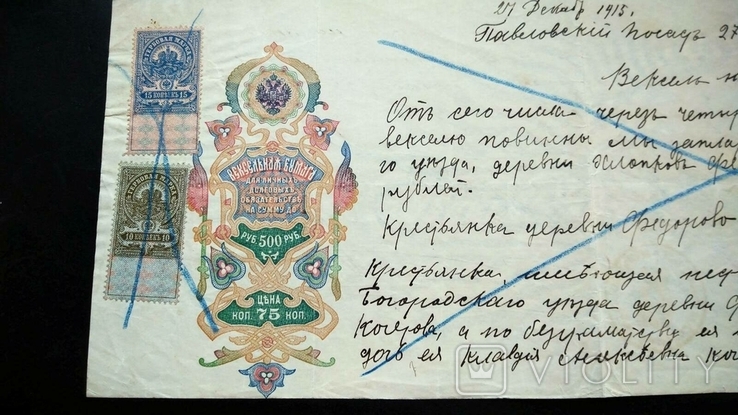 27 Декабр 1915.
Павловскій Посадъ 27
Вексель н
Отъ сего числа черезъ четыр
векселю повинны мы заплат
го уѣзда, деревни Хлопковъ Фе
рублей.
Крестьянка деревни Федорово
Крестьянка, имѣющая
Богородскаго уѣзда деревни Ф
а по безграмотству ея
ея Клавдія Алексѣевна Ко
ГЕРБОВАЯ МАРКА
15 КОПѢЕКЪ 15
ГЕРБОВАЯ МАРКА
10 КОПѢЕКЪ 10
ВЕКСЕЛЬНАЯ БУМАГА
ДЛЯ ЛИЧНЫХЪ
ДОЛГОВЫХЪ
ОБЯЗАТЕЛЬСТВЪ
НА СУММУ ДО
РУБ. 500 РУБ.
ЦѢНА
КОП. 75 КОП.
VIOLITY